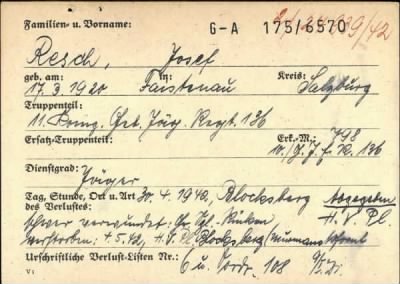 Familien- u. Vorname: G-A 175/6570
Resch, Josef
geb. am: in: Kreis:
17.3.1920 Faistenau Salzburg
Truppenteil:
11. Komp. Geb. Jäg. Regt. 136
Ersatz-Truppenteil: Erk.-M.: 798
136
Dienstgrad:
Jäger
Tag, Stunde, Ort u. Art 30.4.1942, Blocksberg Abgegeben
des Verlustes: H.V.Pl.
schwer verwundet. Gr. Spl. Rücken
verstorben: 1.5.42, H.V.Pl. Blocksberg/Murmanskfront
Urschriftliche Verlust-Listen Nr.:
V 1 108